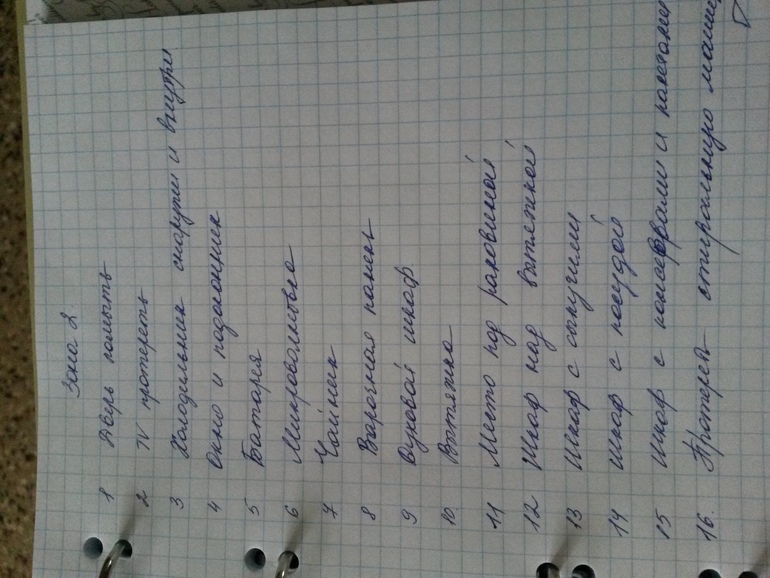 Зона 2.
1 Дверь помыть
2 TV протереть
3 Холодильник снаружи и внутри
4 Окно и подоконник
5 Батарея
6 Микроволновка
7 Чайник
8 Варочная панель
9 Духовой шкаф
10 Вытяжка
11 Место под раковиной
12 Шкаф над вытяжкой
13 Шкаф с сыпучими
14 Шкаф с посудой
15 Шкаф с консервами и пакетами
16. Протереть стиральную